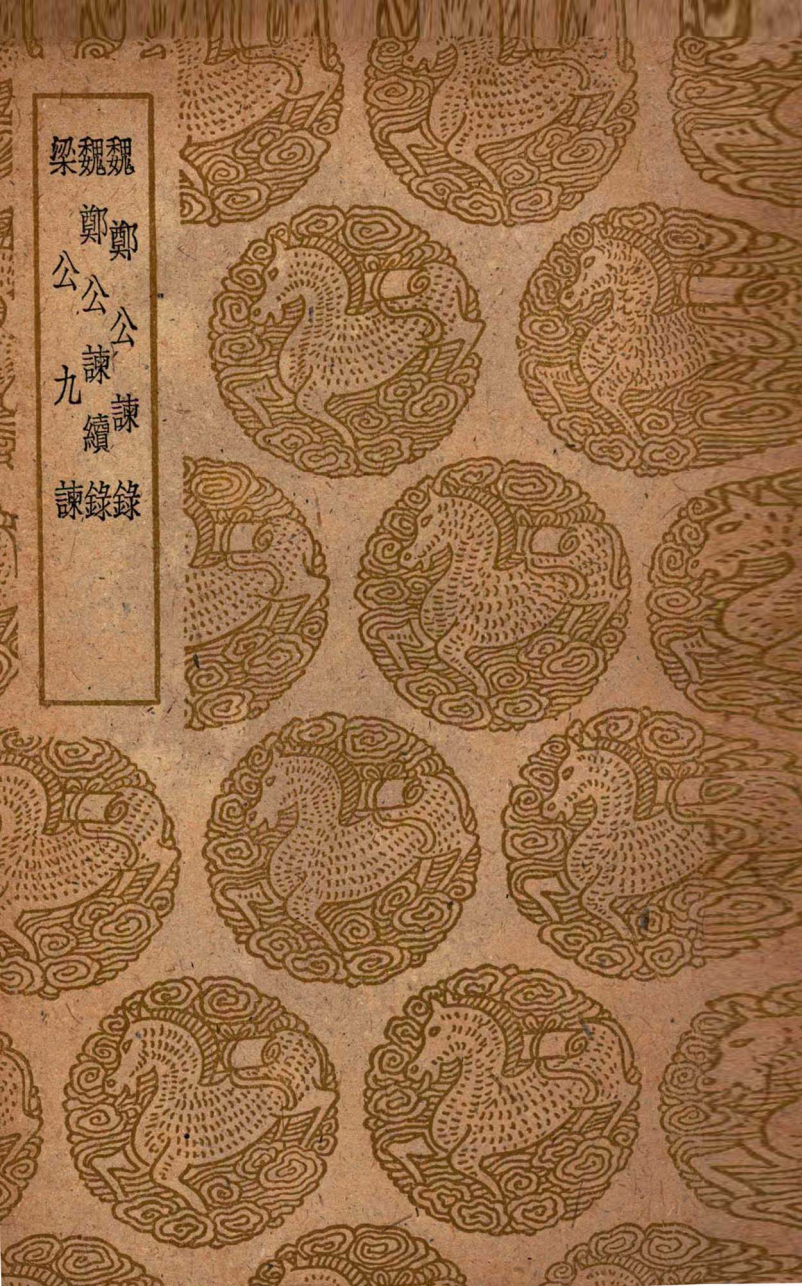 魏鄭公諫錄
魏鄭公諫續錄
梁公九諫